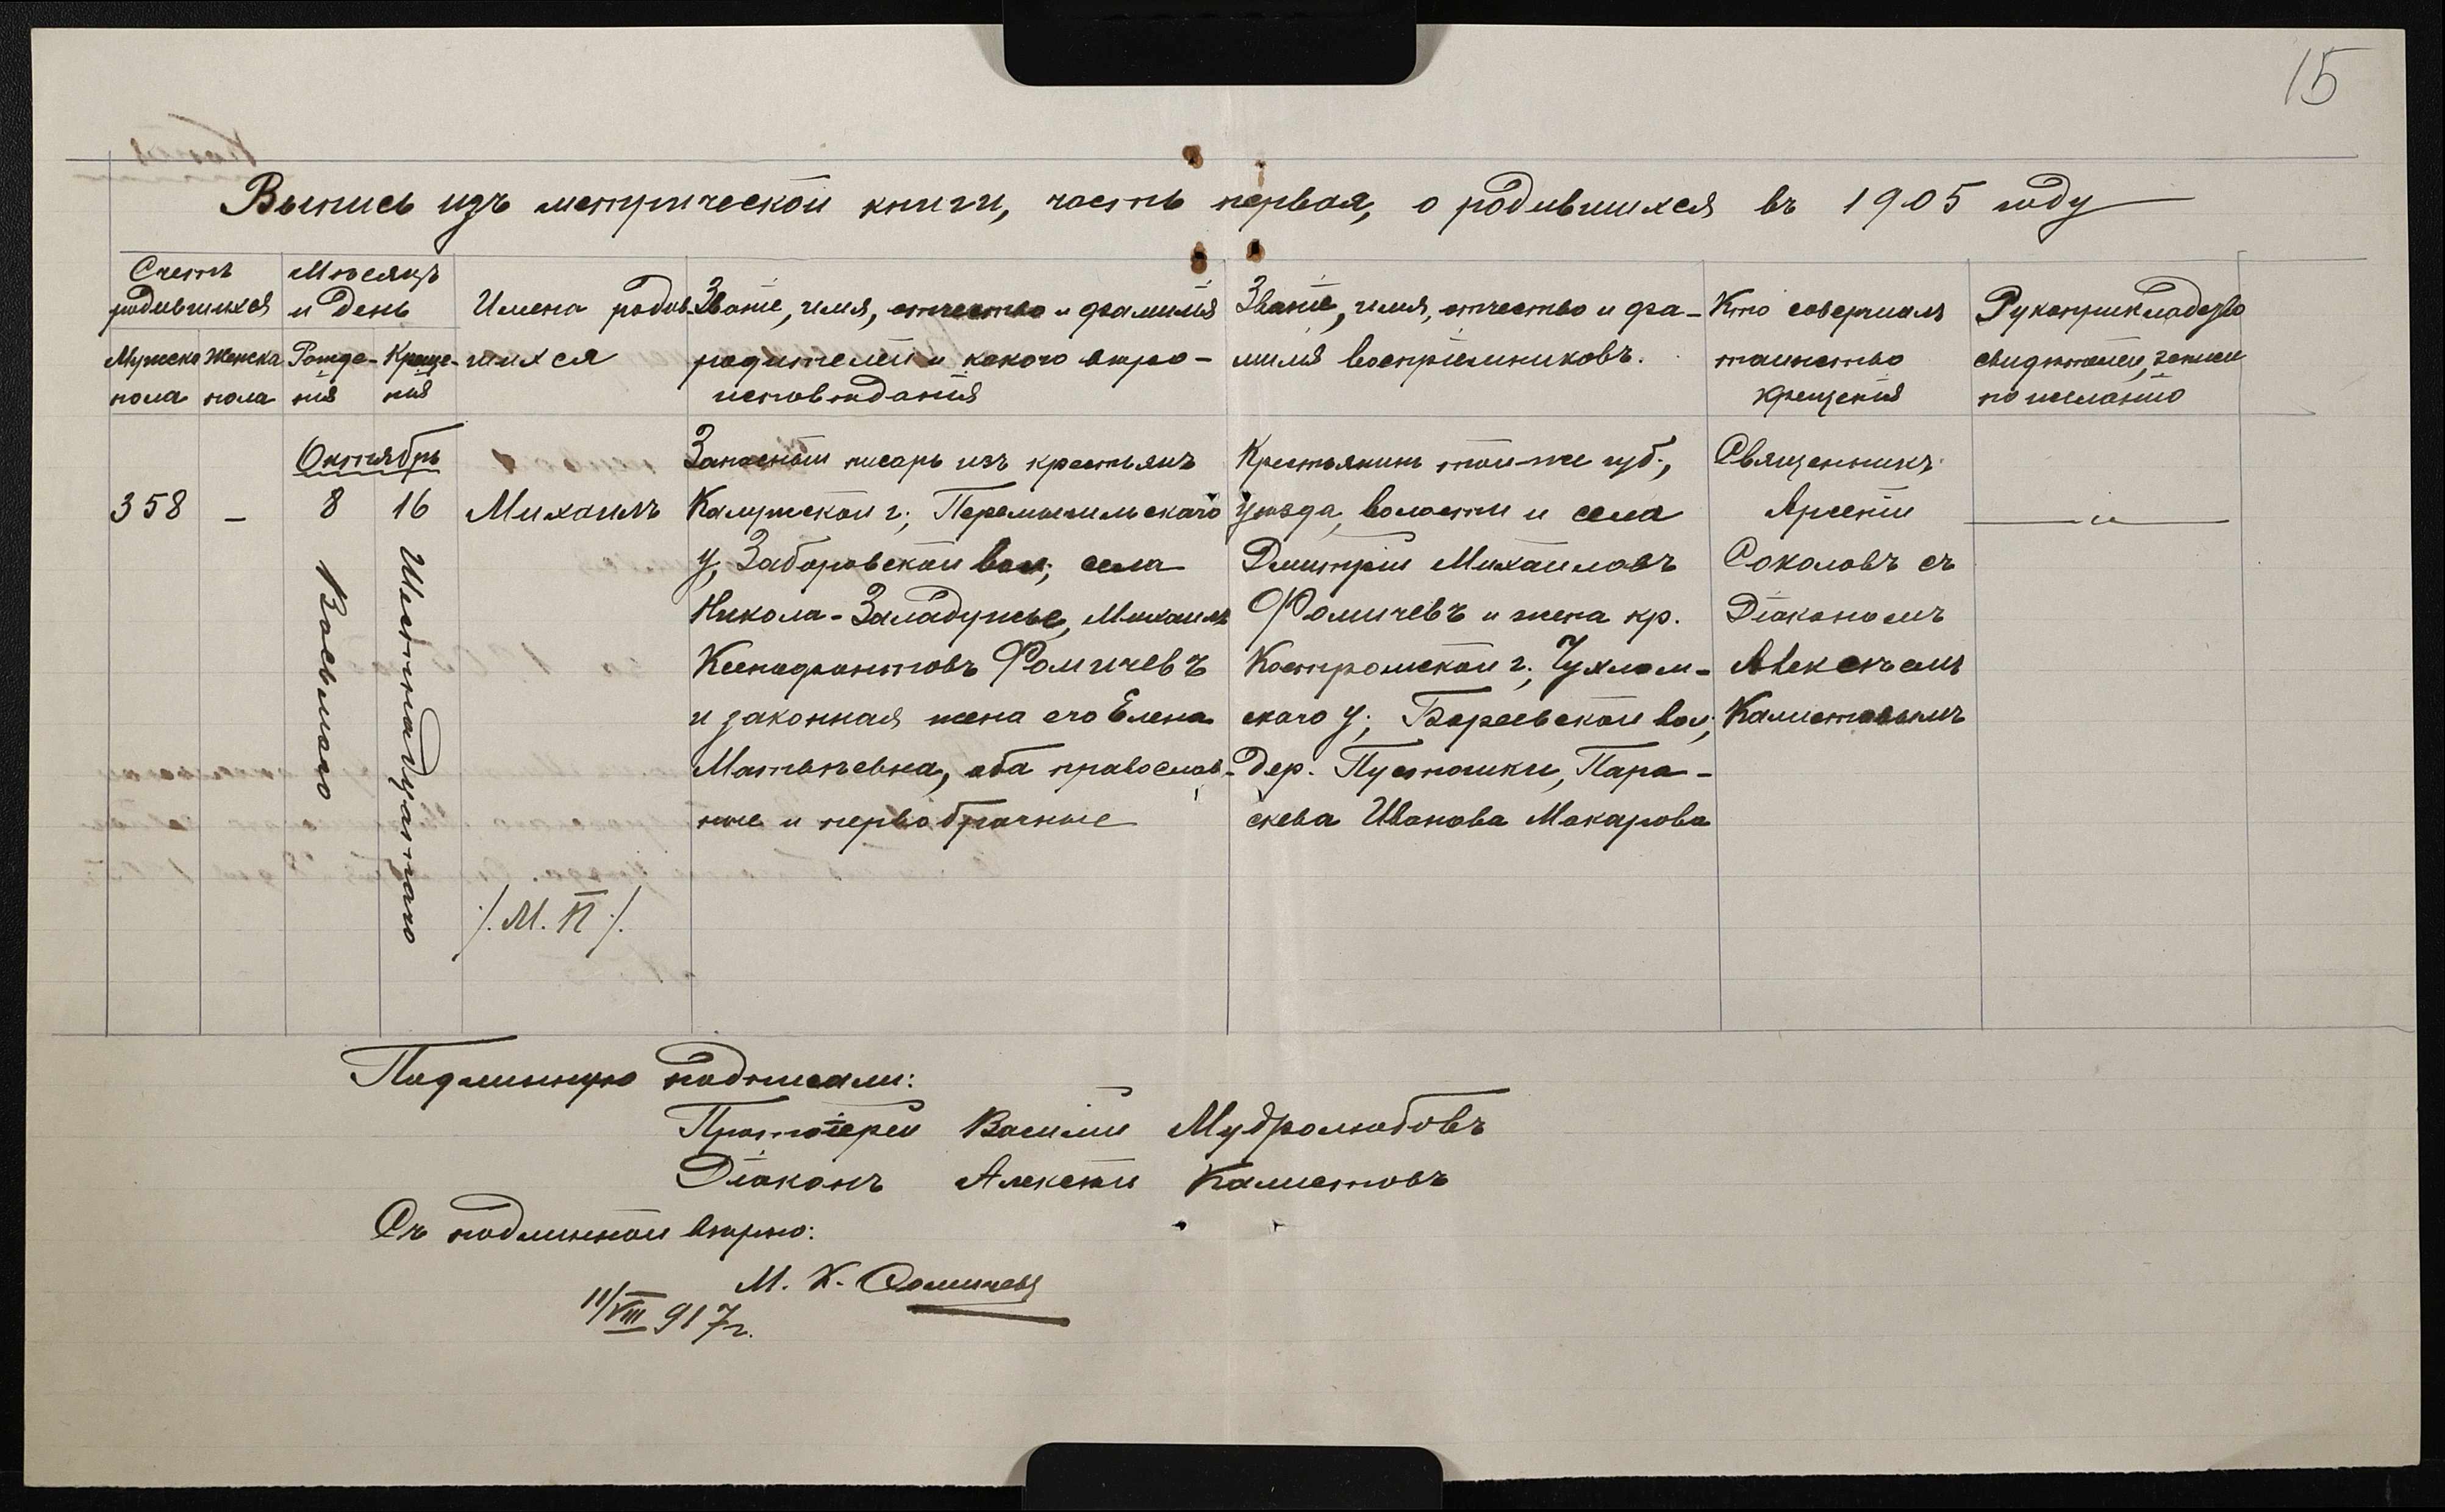 15
Выпись изъ метрической книги, часть первая, о родившихся въ 1905 году
Счетъ родившихся
Мѣсяцъ и день
Имена родив-
шихся
Званіе, имя, отчество и фамилія
родителей и какого вѣро-
исповѣданія
Званіе, имя, отчество и фа-
милія воспріемниковъ.
Кто совершалъ
таинство
крещенія
Рукоприкладство
свидѣтелей записи
по желанію
Мужска пола
Женска пола
Рожде-
нія
Креще-
нія
Октябрь
358
—
8
16
Восьмого
Шестнадцатаго
Михаилъ
/. М. П ./
Запасный писарь изъ крестьянъ
Калужской г., Перемышльскаго
у, Заборовской вол., села
Никола-Заладужье, Михаилъ
Ксенофонтовъ Фомичевъ
и законная жена его Елена
Матвѣевна, оба православ-
ные и первобрачные
Крестьянинъ той-же губ.,
уѣзда, волости и села
Дмитрій Михайловъ
Фомичевъ и жена кр.
Костромской г., Чухлом-
скаго у., вол.,
дер. Пустошки, Пара-
скева Иванова Макарова
Священникъ
Арсеній
Соколовъ съ
Діакономъ
Алексѣемъ
Калистовымъ
— „ —
Подлинную подписали:
Протоіерей Василій Мудролюбовъ
Діаконъ Алексѣй Калистовъ
Съ подлинной вѣрно:
М. К. Фомичевъ
11/VIII 917 г.